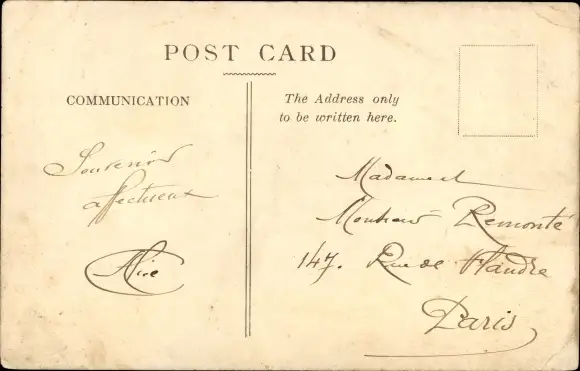 POST CARD
COMMUNICATION
The Address only
to be written here.
Souvenir
affectueux
Madame et
Monsieur Remonté
147. Rue de Flandre
Paris